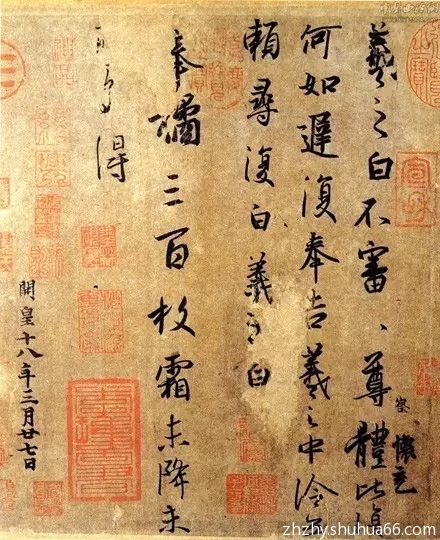 羲之白不審、尊體比復
察 懷充
何如遲復奉告羲之中冷無
賴尋復白羲之白
奉橘三百枚霜未降未
可多得
開皇十八年三月廿七日
zhzhy.shuhua66.com